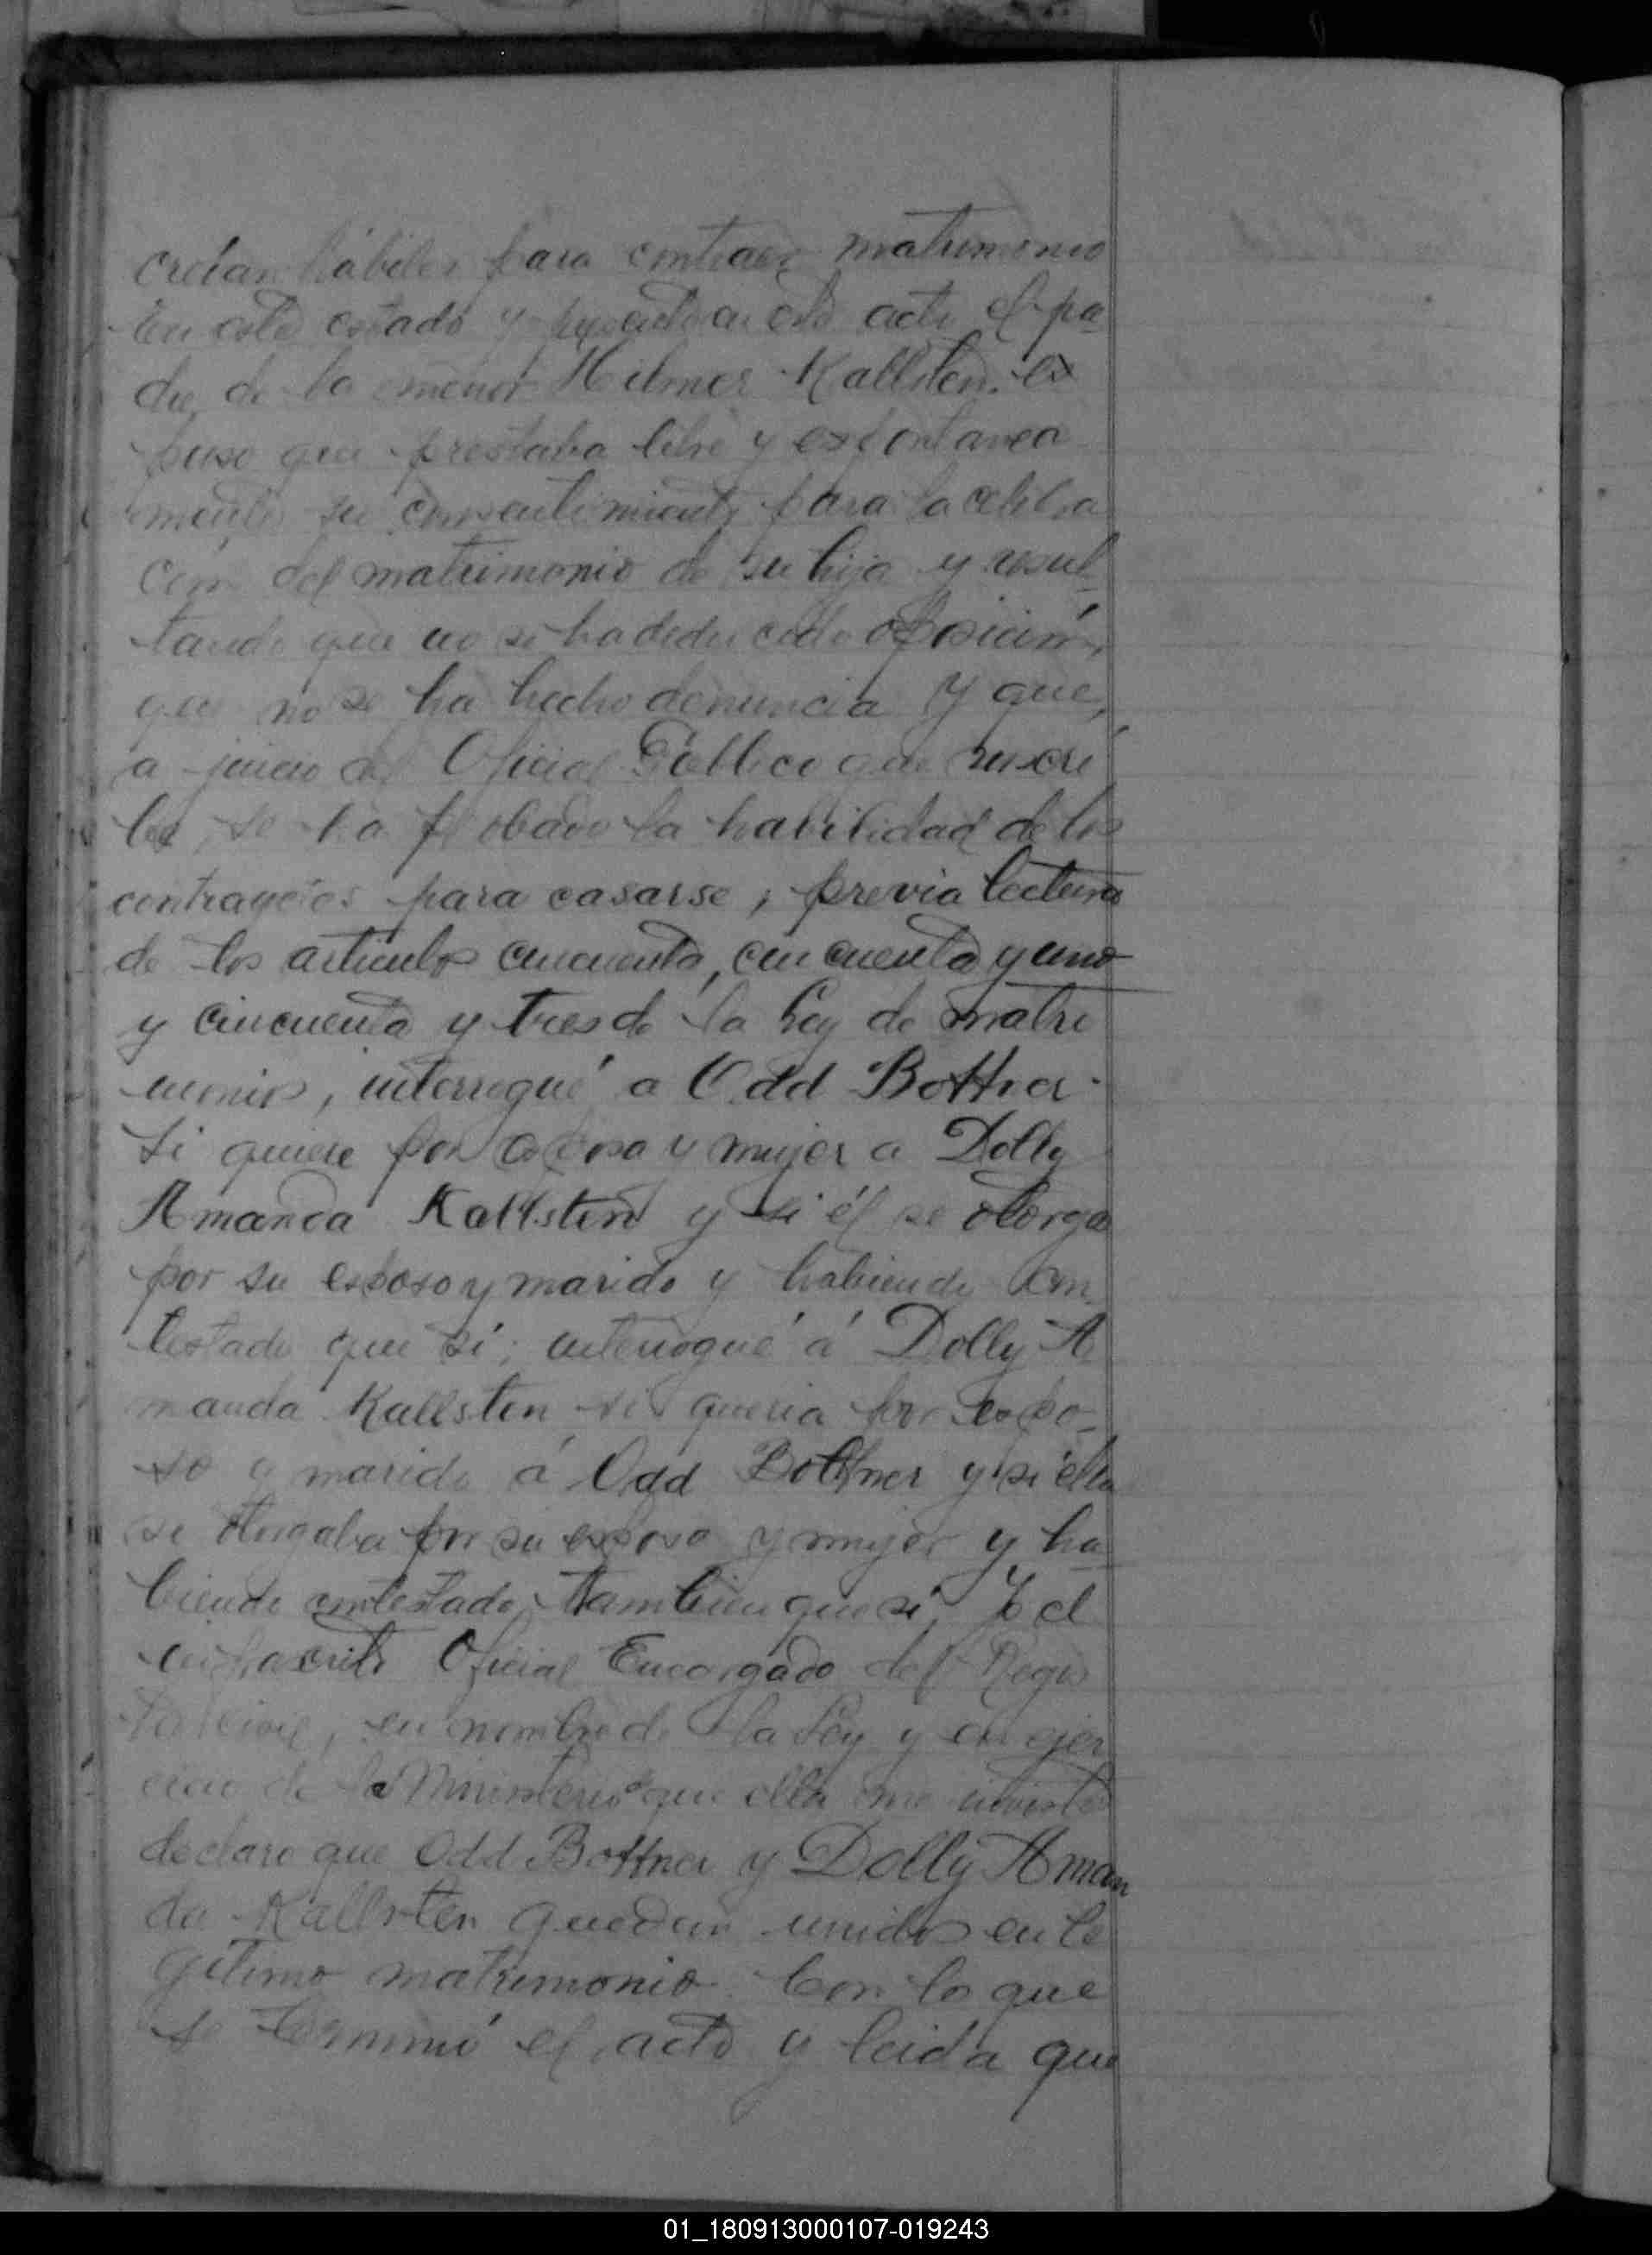 creían hábiles para contraer matrimonio
En este estado y presente a este acto el pa
dre de la menor Hilmer Kallsten. ex
puso que prestaba libre y espontanea
mente su consentimiento para la celebra
cion del matrimonio de su hija y resul-
tando que no se ha deducido oposición,
que no se ha hecho denuncia y que,
a juicio del Oficial Público que suscri
be, se ha probado la habilidad de los
contrayetes para casarse, previa lectura
de los articulos cincuenta, cincuenta y uno
y cincuenta y tres de la Ley de matri
monio, interrogué a Odd Bottner
si quiere por esposa y mujer a Dolly
Amanda Kallsten y si él se otorga
por su esposo y marido y habiendo con
testado que sí; interrogué á Dolly A
manda Kallsten si queria por espo-
so y marido á Odd Bottner y si ella
se otorgaba por su esposa y mujer y ha
biendo contestado tambien que sí, Yo el
infrascrito Oficial Encargado del Regis
tro Civil, en nombre de la Ley y en ejer
cicio de Ministerio que ella me inviste
declaro que Odd Bottner y Dolly Aman
da Kallsten quedan unidos en le
gitimo matrimonio. Con lo que
se terminó el acto y leida que
01_180913000107-019243